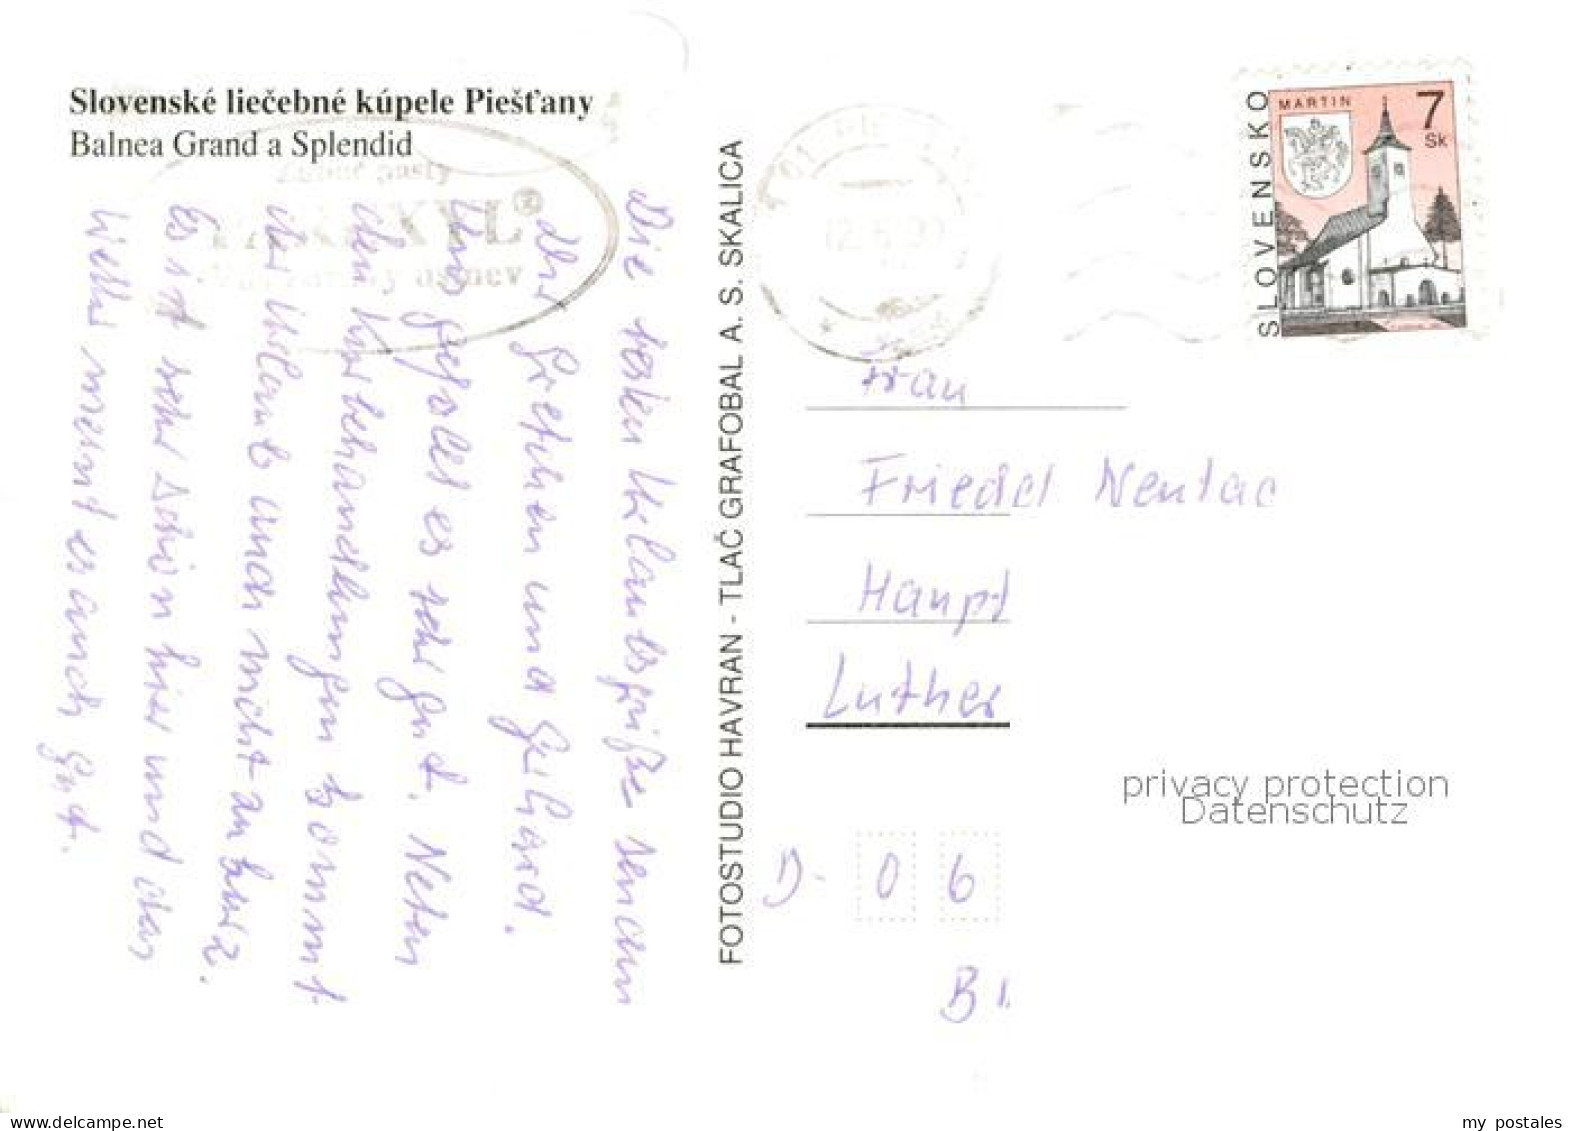 Slovenské liečebné kúpele Piešťany
Balnea Grand a Splendid
Zubné pasty
Die besten Urlaubsgrüße senden
Gretchen und Gerhard.
Uns gefällt es sehr gut. Neben
den Kurbehandlungen kommt
der Urlaub auch nicht zu kurz.
Es ist sehr schön hier und das
Wetter meint es auch gut.
FOTOSTUDIO HAVRAN - TLAČ GRAFOBAL A. S. SKALICA
SLOVENSKO
MARTIN
7
Sk
Frau
Friedel
Haupt
Luther
D- 0 6
privacy protection
Datenschutz
my postales